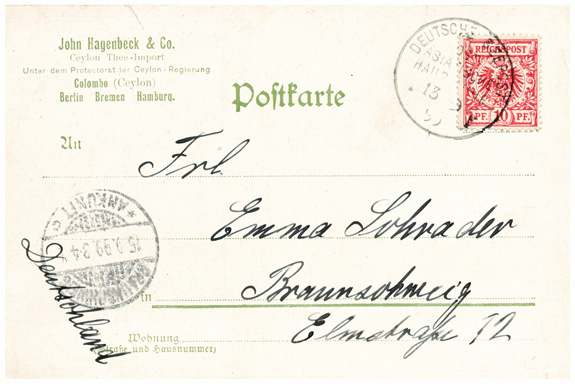 John Hagenbeck & Co.
Ceylon Thee-Import
Unter dem Protectorat der Ceylon-Regierung
Colombo (Ceylon)
Berlin Bremen Hamburg.
Postkarte
DEUTSCHE SEEPOST
13 9
99
REICHSPOST
PF. 10 PF.
An
Frl.
ANKUNFT
15.9.99.3-4
Deutschland
Emma Schrader
in Braunschweig
Elmstraße 12
Wohnung
(Straße und Hausnummer)